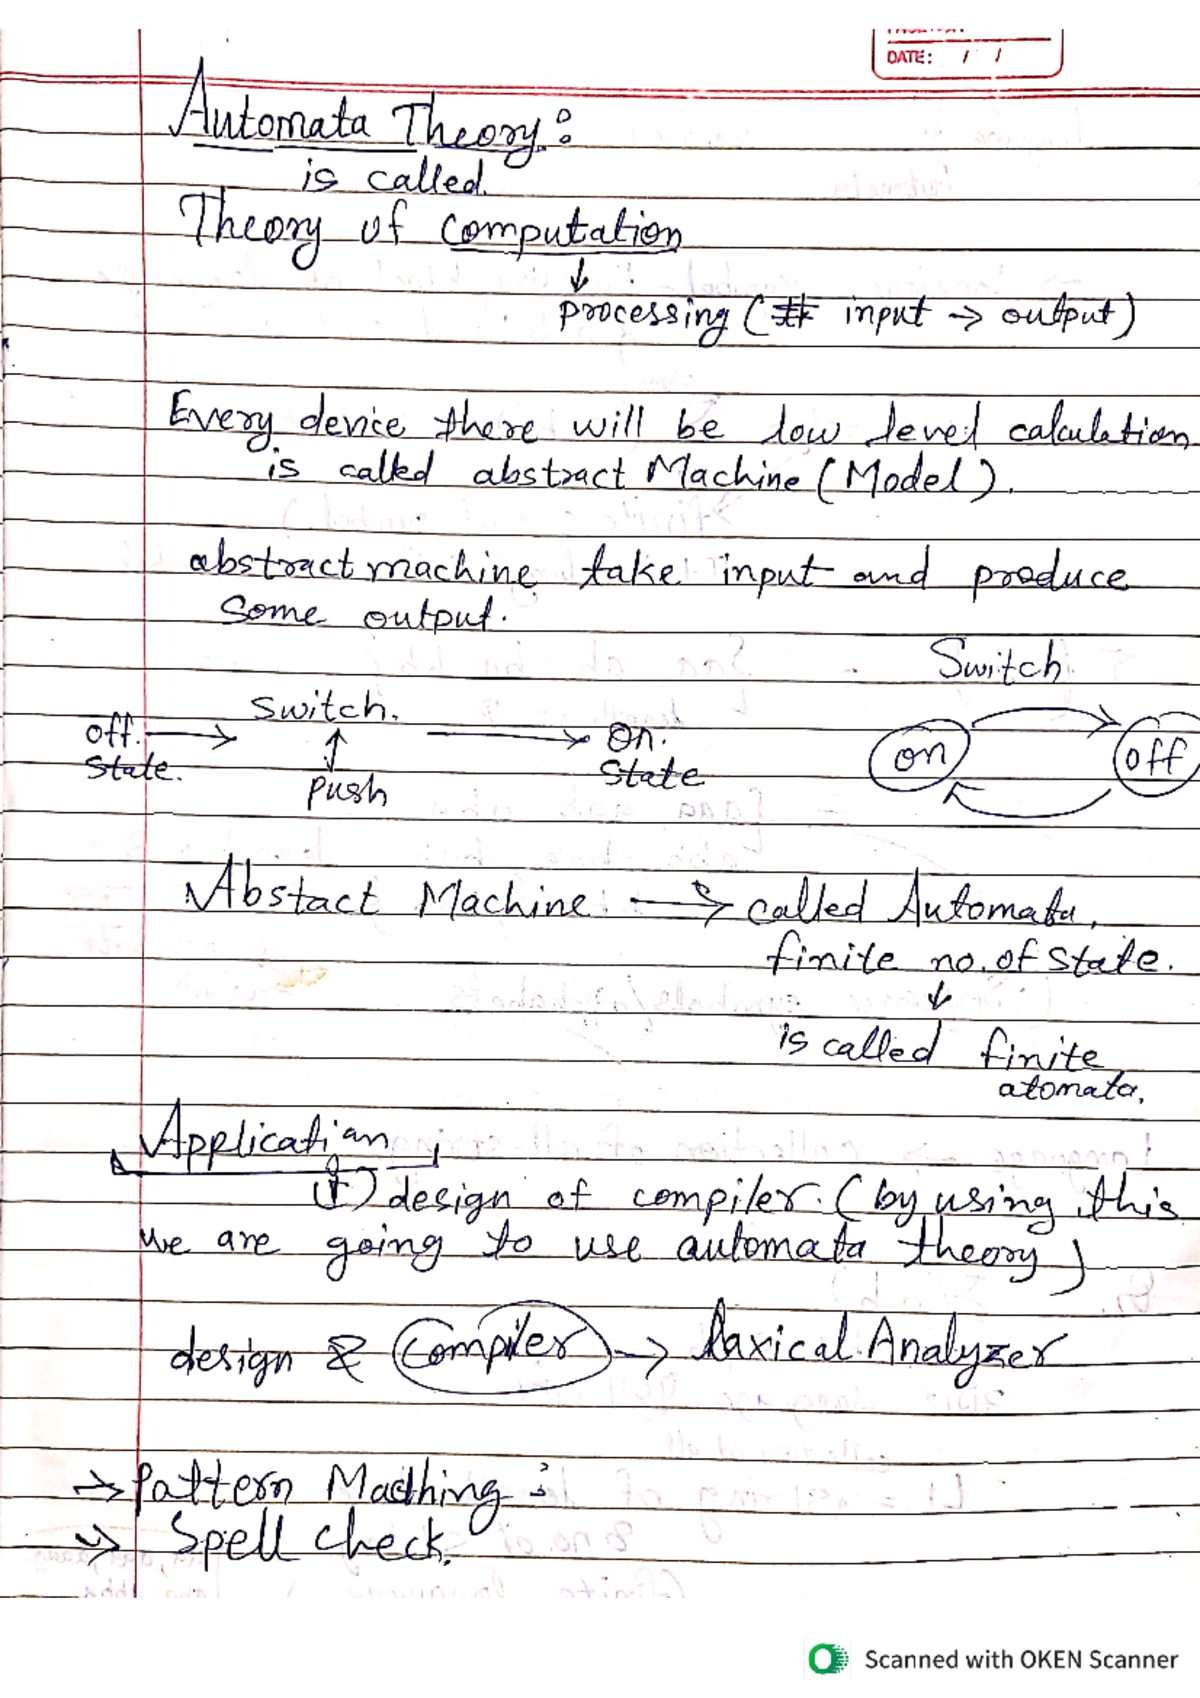 DATE: / /
Automata Theory:
is called.
Theory of Computation
↓
processing ( input → output)
Every device there will be low level calculation
is called abstract Machine (Model).
abstract machine take input and produce
Some output.
Switch
off. → switch. → On.
State. ↑ State
push
on off
Abstact Machine → called Automata,
finite no. of State.
↓
is called finite
atomata.
Application
(1) design of compiler. (by using this
we are going to use automata theory)
design & Compiler → Laxical Analyzer
→ Pattern Madhing :
→ Spell Check.
Scanned with OKEN Scanner